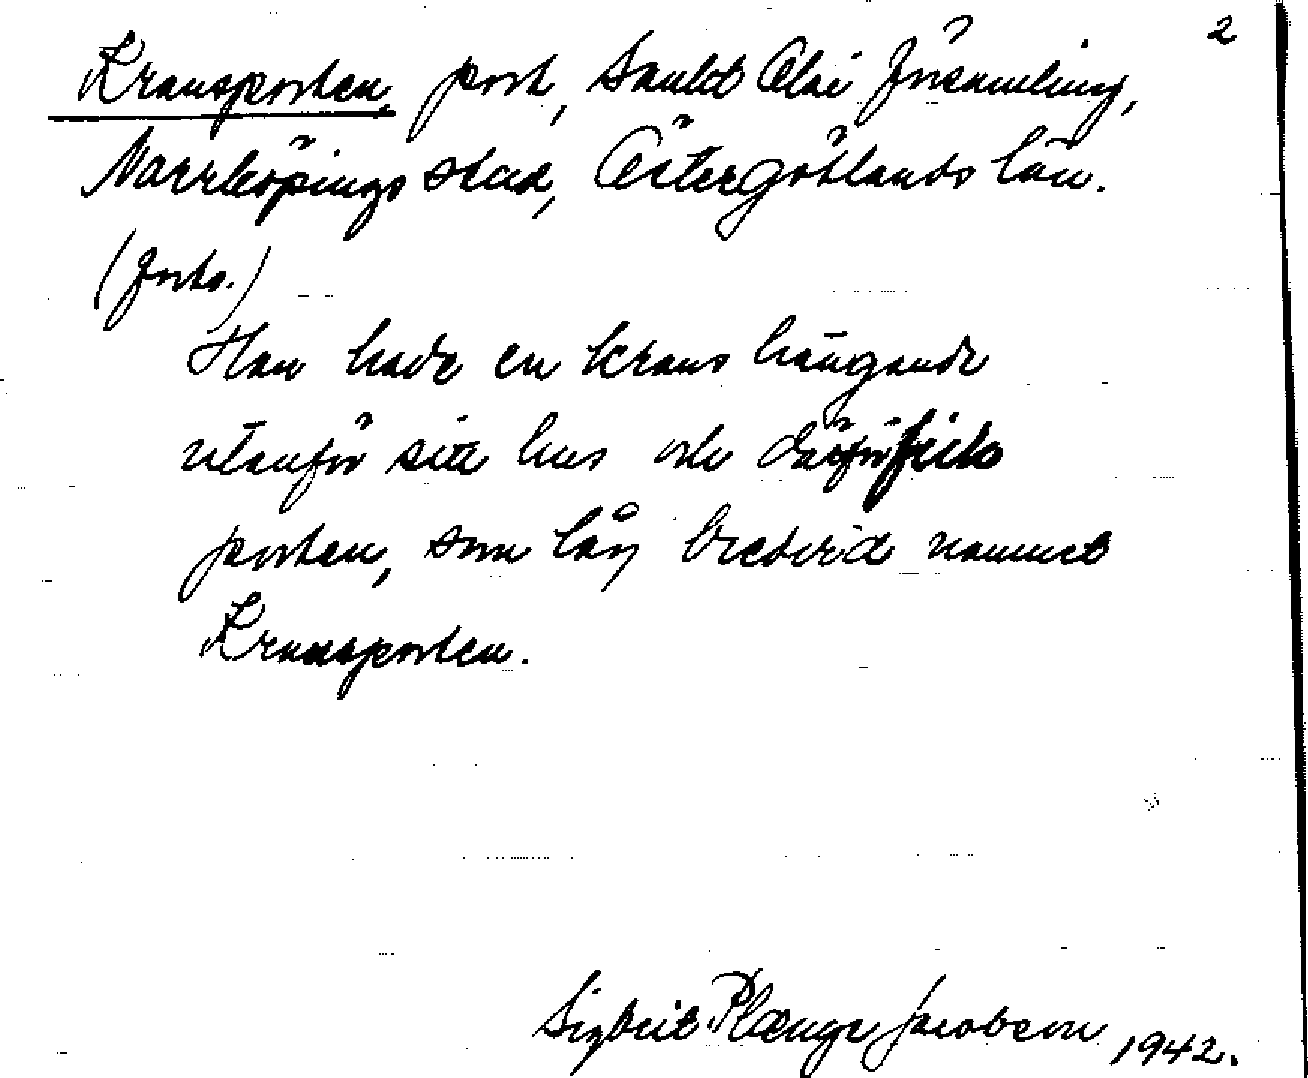 2
Kransporten, port, Sankt Olai församling,
Norrköpings stad, Östergötlands län.
(forts.)
Han hade en krans hängande
utanför sitt hus och därför fick
porten, som låg bredvid namnet
Kransporten.
Sigbrit Plænge Jacobson 1942.